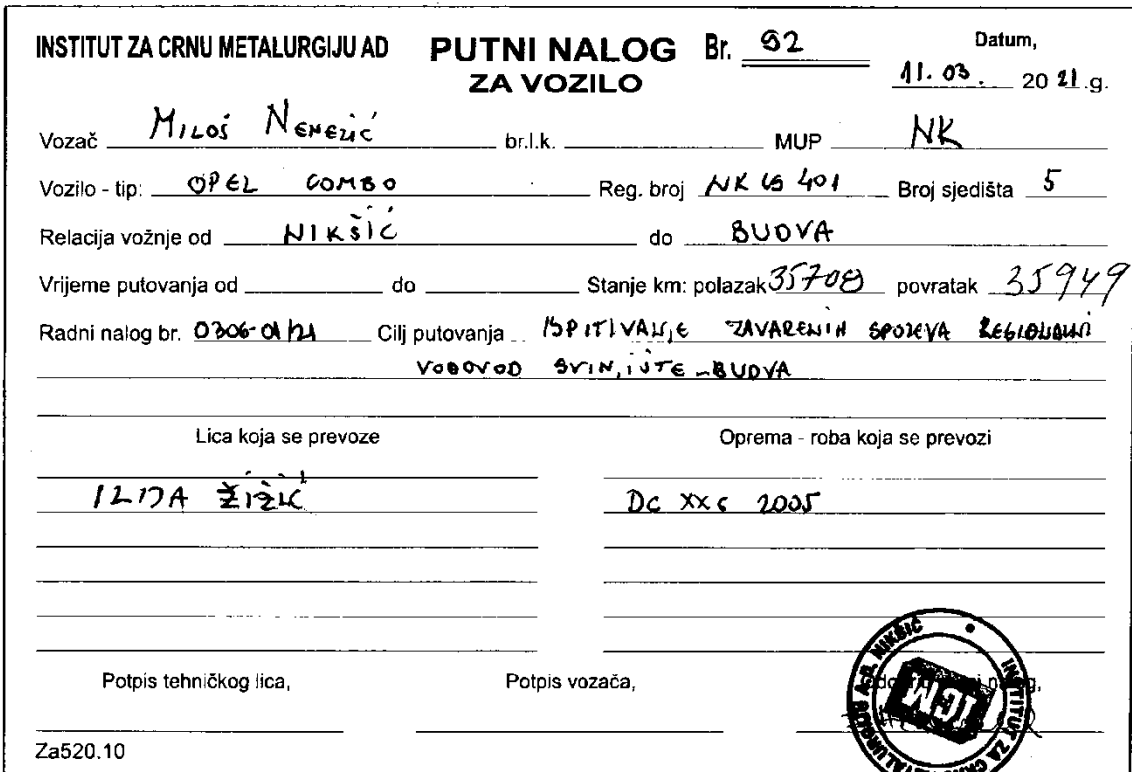 INSTITUT ZA CRNU METALURGIJU AD PUTNI NALOG Br. 92 Datum,
ZA VOZILO 11.03. 2021.g.
Vozač Miloš Nenezić br.l.k. MUP NK
Vozilo - tip: OPEL COMBO Reg. broj NK 401 Broj sjedišta 5
Relacija vožnje od NIKŠIĆ do BUDVA
Vrijeme putovanja od do Stanje km: polazak 35708 povratak 35949
Radni nalog br. 0306-01/21 Cilj putovanja ISPITIVANJE ZAVARENIH SPOJEVA REGIONALNI
VODOVOD BUDVA
Lica koja se prevoze Oprema - roba koja se prevozi
ILIJA ŽIŽIĆ DC XXG 2005
Potpis tehničkog lica, Potpis vozača, nalog,
INSTITUT ZA CRNU METALURGIJU A.D. NIKŠIĆ
ICM
Za520.10